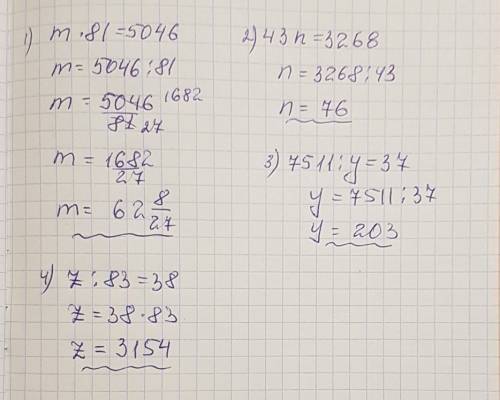 1) m · 81 = 5046
m = 5046 : 81
m = 5046/81 1682/27
m = 1682/27
m = 62 8/27
2) 43n = 3268
n = 3268 : 43
n = 76
3) 7511 : y = 37
y = 7511 : 37
y = 203
4) z : 83 = 38
z = 38 · 83
z = 3154